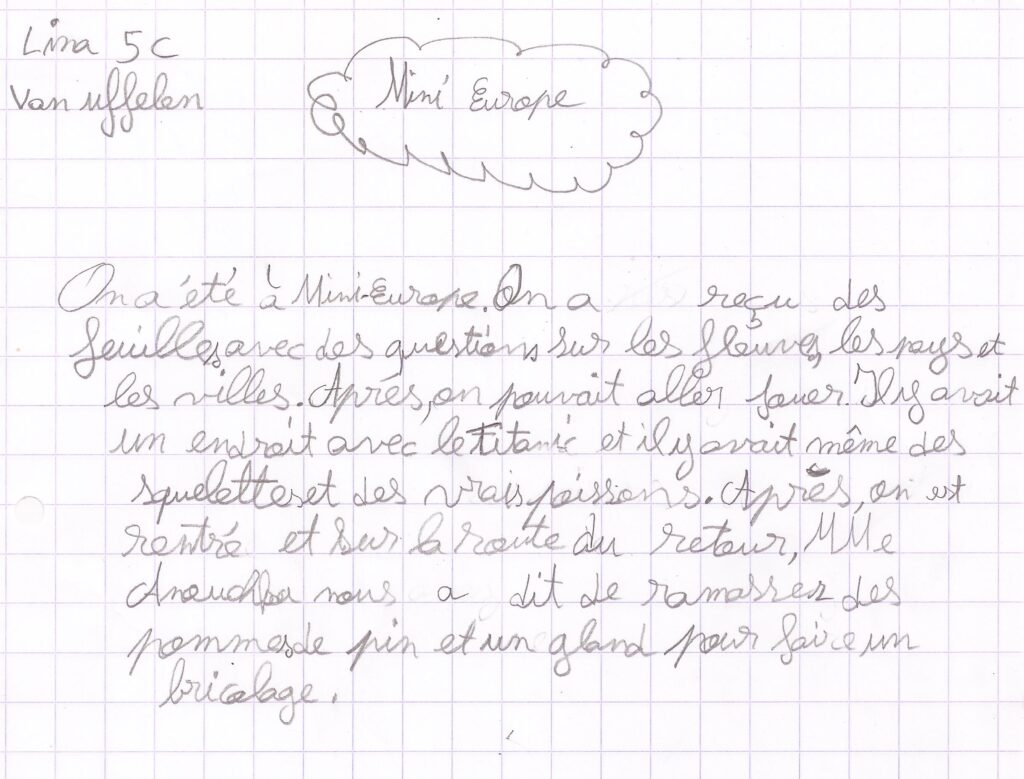 Lina 5C
Van uffelen
Mini Europe
On a été à Mini-Europe. On a reçu des
feuilles, avec des questions sur les fleuves, les pays et
les villes. Après, on pouvait aller jouer. Il y avait
un endroit avec le Titanic et il y avait même des
squelettes et des vrais poissons. Après, on est
rentré et sur la route du retour, MMe
Anouchka nous a dit de ramasser des
pommes de pin et un gland pour faire un
bricolage.